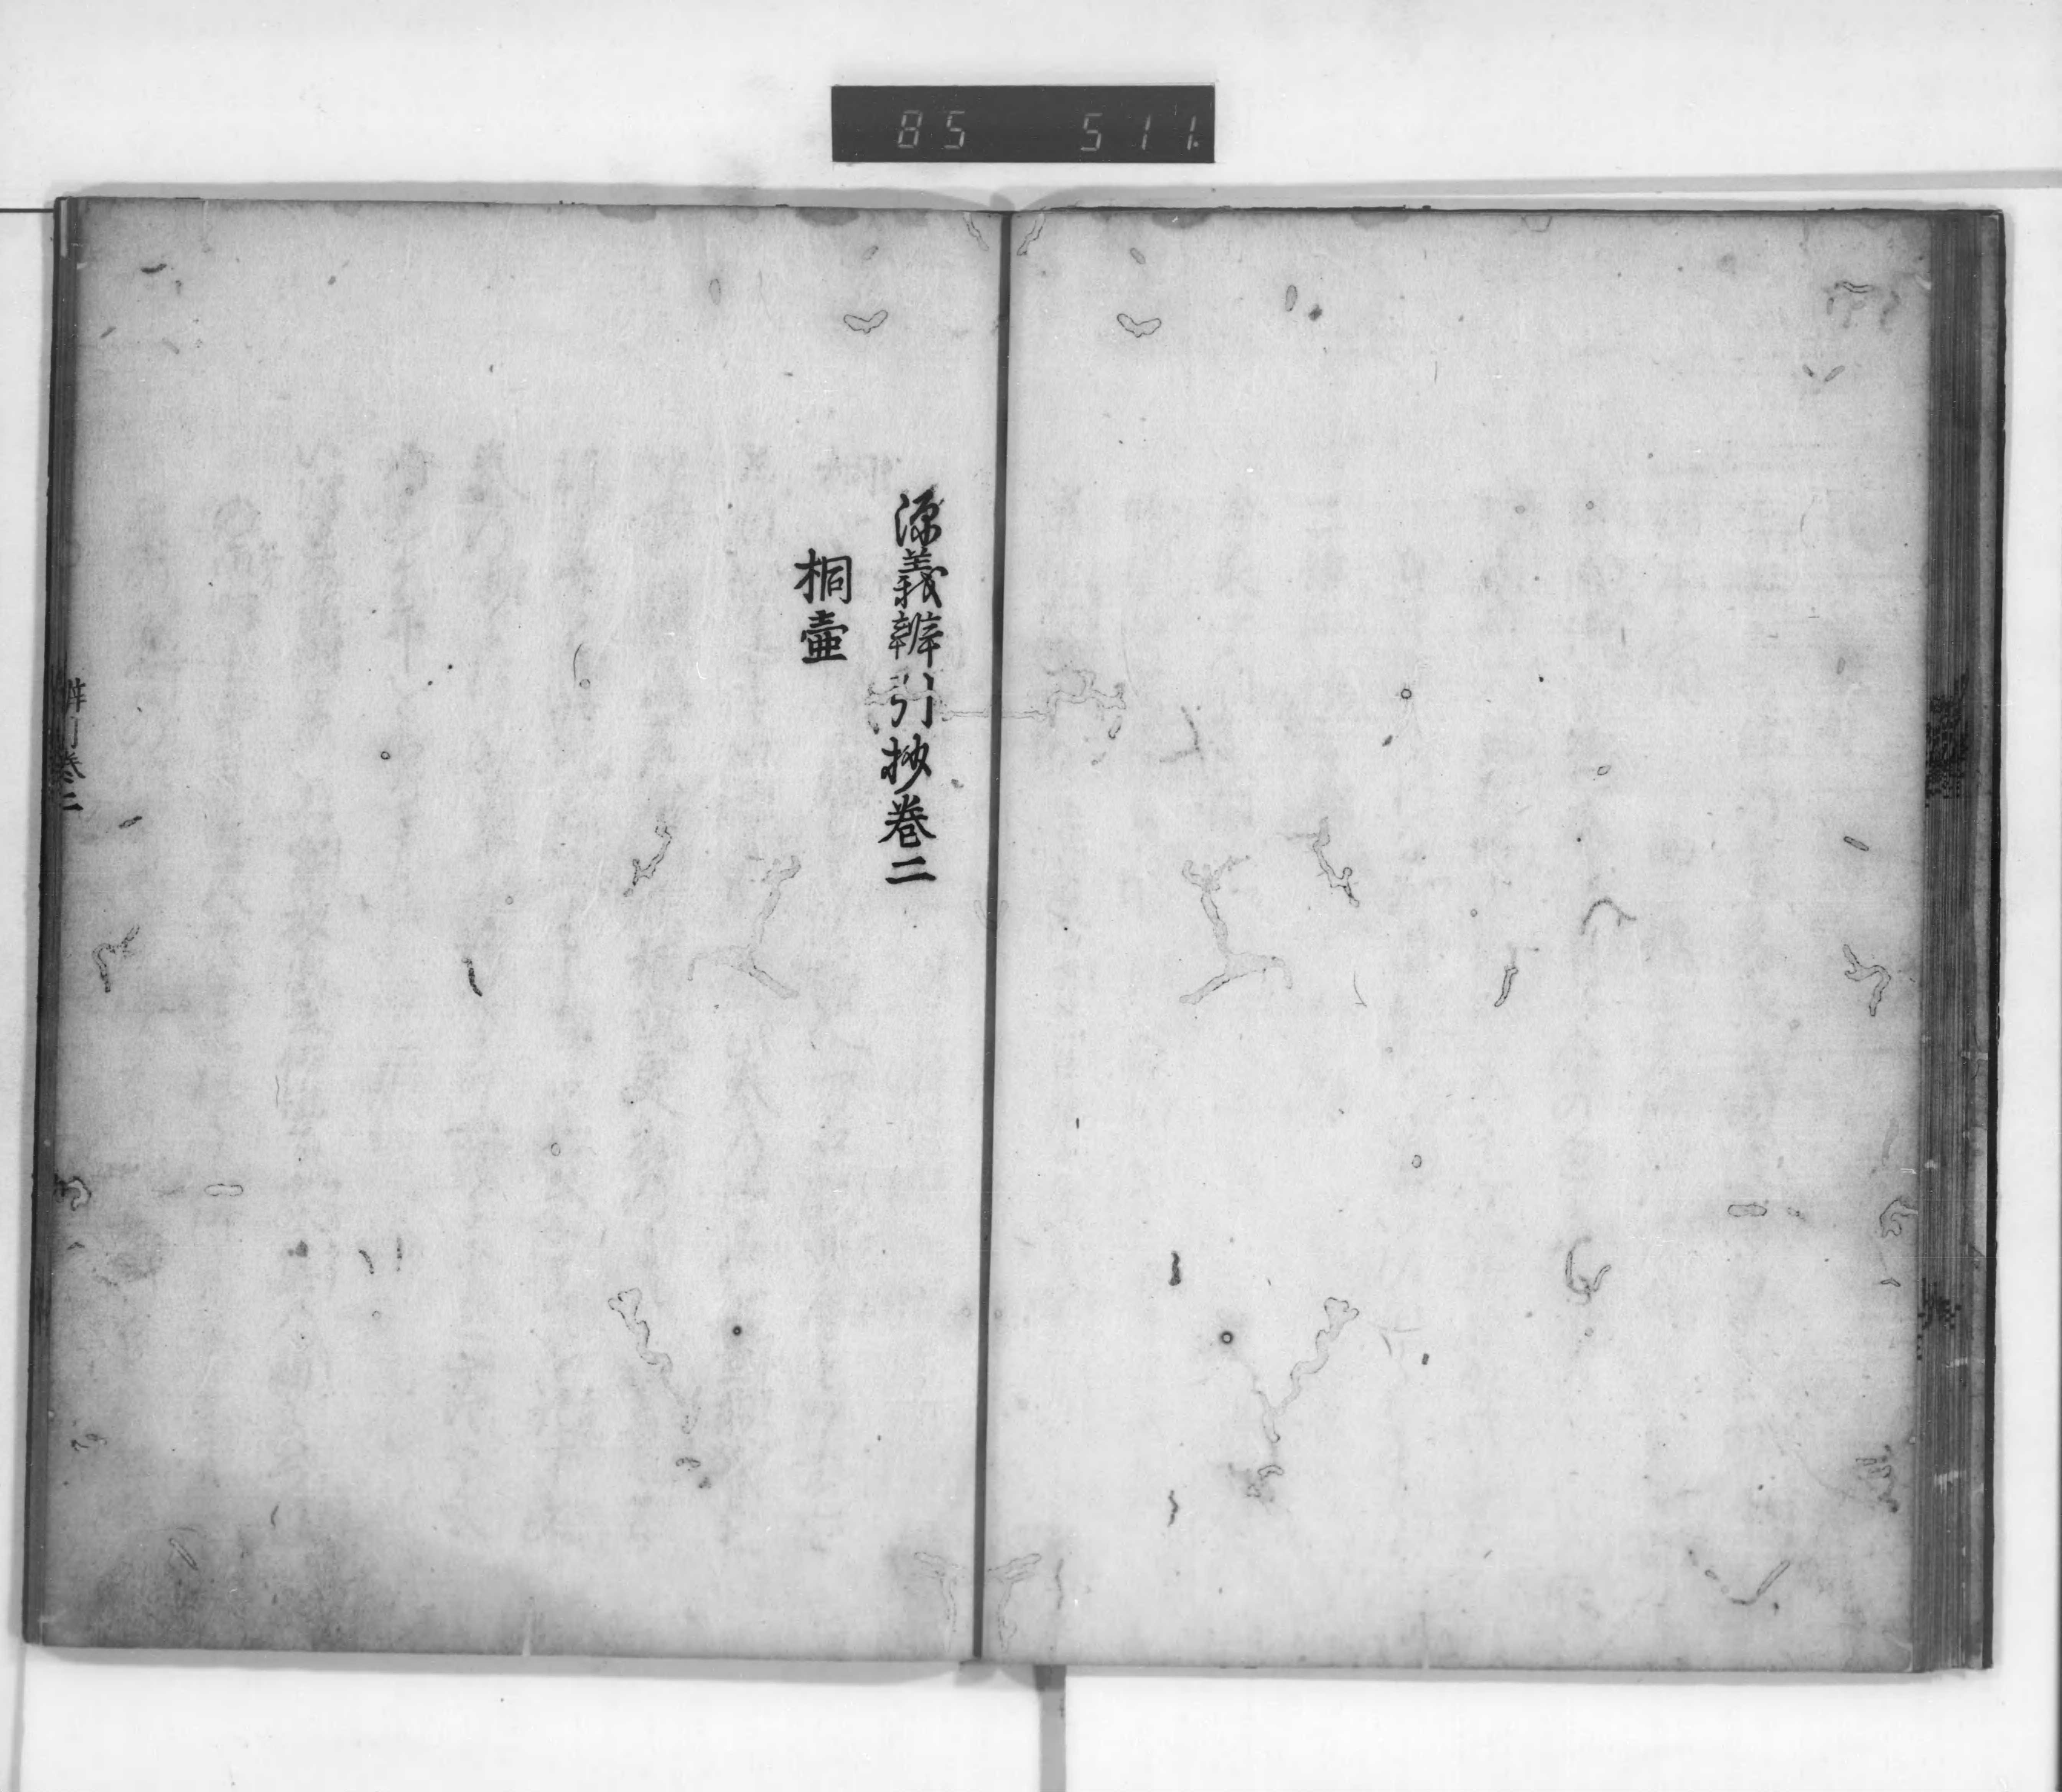 85 511
源義辨引抄巻二
桐壷
辨引巻二